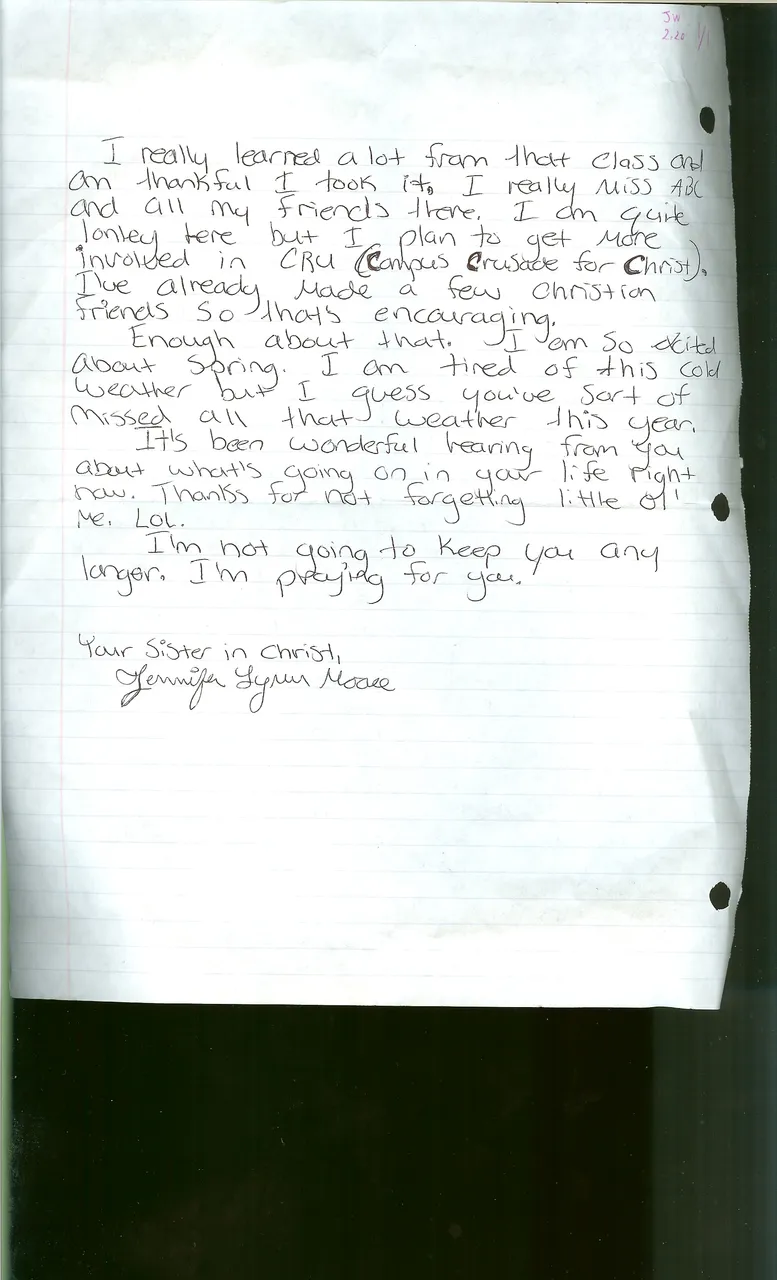 JW
2.20 1/1
I really learned a lot from that class and
am thankful I took it. I really miss ABC
and all my friends there. I am quite
lonley here but I plan to get more
involved in CRU (Campus Crusade for Christ).
I've already made a few Christian
friends so that's encouraging.
Enough about that. I am so excited
about Spring. I am tired of this cold
weather but I guess you've sort of
missed all that weather this year.
It's been wonderful hearing from you
about what's going on in your life right
now. Thanks for not forgetting little ol'
me. LOL.
I'm not going to keep you any
longer. I'm praying for you.
Your Sister in Christ,
Jennifer Lynn Moore